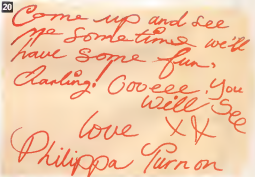 20
Come up and see
me sometime we'll
have some fun,
darling! Oooeee. You
will see
love XX
Philippa Turnon